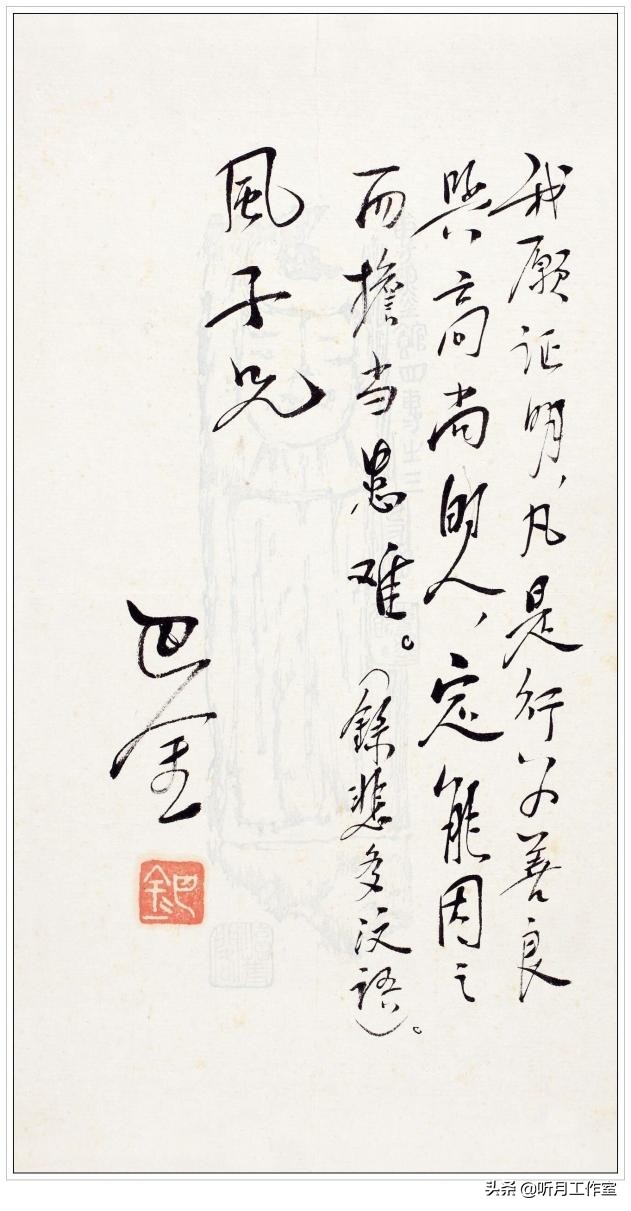 我願证明，凡是行为善良
與高尚的人，定能因之
而擔当患难。（錄悲多汶語）。
風子兄
巴金
巴金
头条 @听月工作室